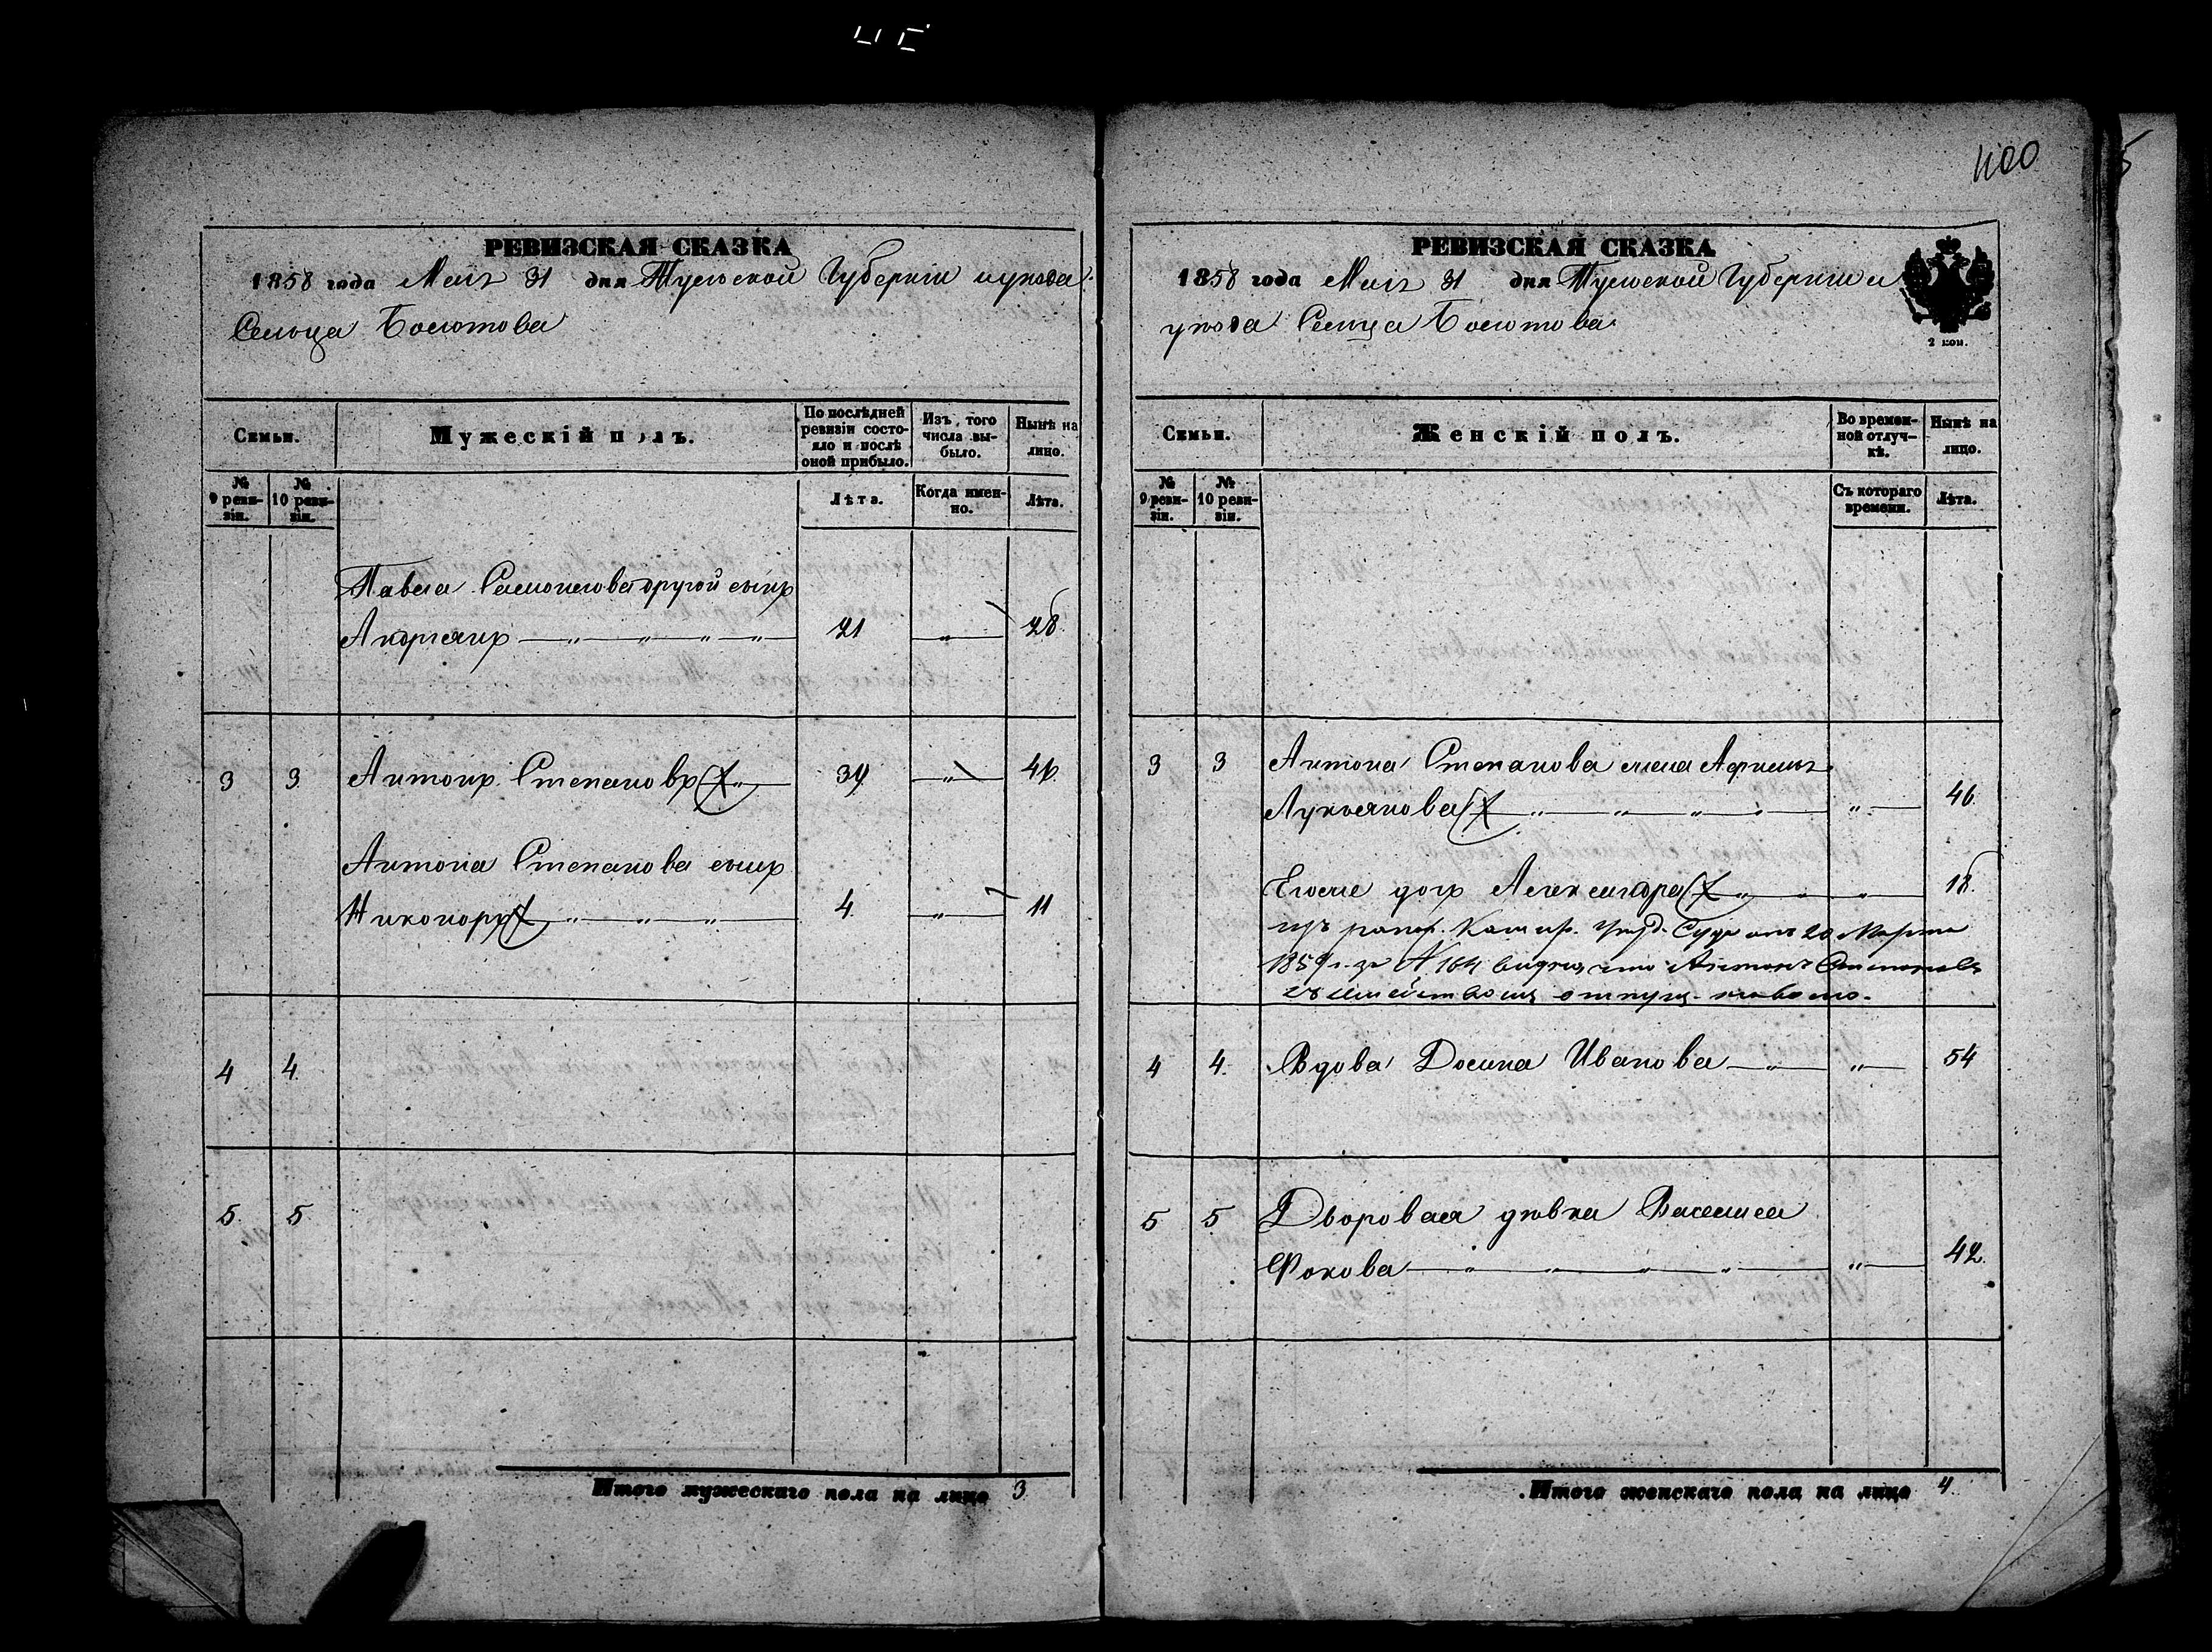 400
РЕВИЗСКАЯ СКАЗКА
1858 года Маія 31 дня Тульской Губерніи и уѣзда
Сельца Болотова
Семьи.
Мужескій полъ.
По послѣдней ревизіи состояло и послѣ оной прибыло.
Изъ того числа выбыло.
Нынѣ на лицо.
№ 9 ревизіи.
№ 10 ревизіи.
Лѣта.
Когда именно.
Лѣта.
Павла другой сынъ
21 " 28
3 3 Антонъ Степановъ 39 " 46
Антона Степанова сынъ
Никоноръ " " " 4 " 11
4 4
5 5
Итого мужескаго пола на лицо 3
РЕВИЗСКАЯ СКАЗКА
1858 года Маія 31 дня Тульской Губерніи и
уѣзда Сельца Болотова
2 коп.
Семьи.
Женскій полъ.
Во временной отлучкѣ.
Нынѣ на лицо.
№ 9 ревизіи.
№ 10 ревизіи.
Съ котораго времени.
Лѣта.
3 3 Антона Степанова жена
Лукьянова " " " " " 46
дочь Александра " " " 18
изъ рапор. Кашир. Уѣзд. Суда отъ 20 Марта
1859 г. за № 164 видно, что Антонъ Степановъ
съ семействомъ отпущ. на волю.
4 4 Вдова Ивановна " " 54
5 5 Дворовая дѣвка Василиса
Фокова " " " " " 42
Итого женскаго пола на лицо 4